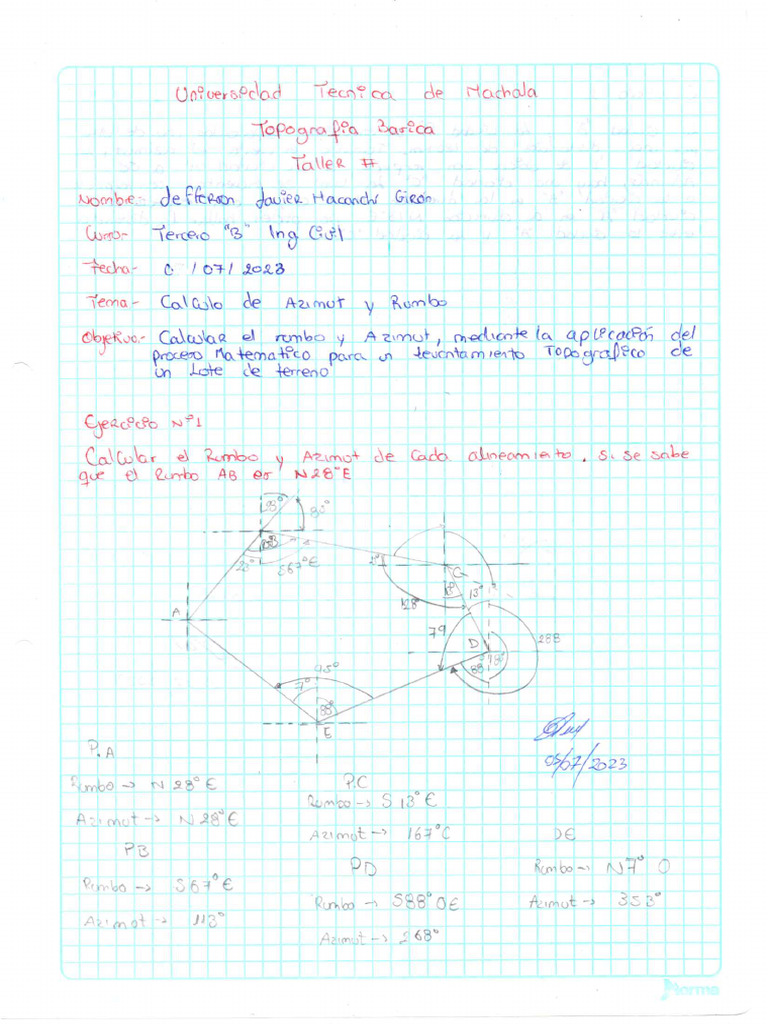 Universidad Tecnica de Machala
Topografia Basica
Taller #
Nombre:- Jefferson Javier Macanchi Giron
Curso:- Tercero "B" Ing Civil
Fecha:- 0 /07/2023
Tema:- Calculo de Azimut y Rumbo
Objetivo:- Calcular el rumbo y Azimut, mediante la aplicación del
proceso Matematico para un levantamiento Topografico de
un Lote de terreno
Ejercicio Nº1
Calcular el Rumbo y Azimut de Cada alineamiento. si se sabe
que el Rumbo AB es N28°E
80°
28°
S67°E
G
13°
128°
A
79
D
288
88°
95°
7°
88°
E
05/07/2023
P.A
Rumbo → N 28° E
Azimut → N 28° E
PB
Rumbo → S67° E
Azimut → 113°
P.C
Rumbo → S 13° E
Azimut → 167° C
PD
Rumbo → S88° OE
Azimut → 268°
DE
Rumbo → N7° O
Azimut → 353°
norma